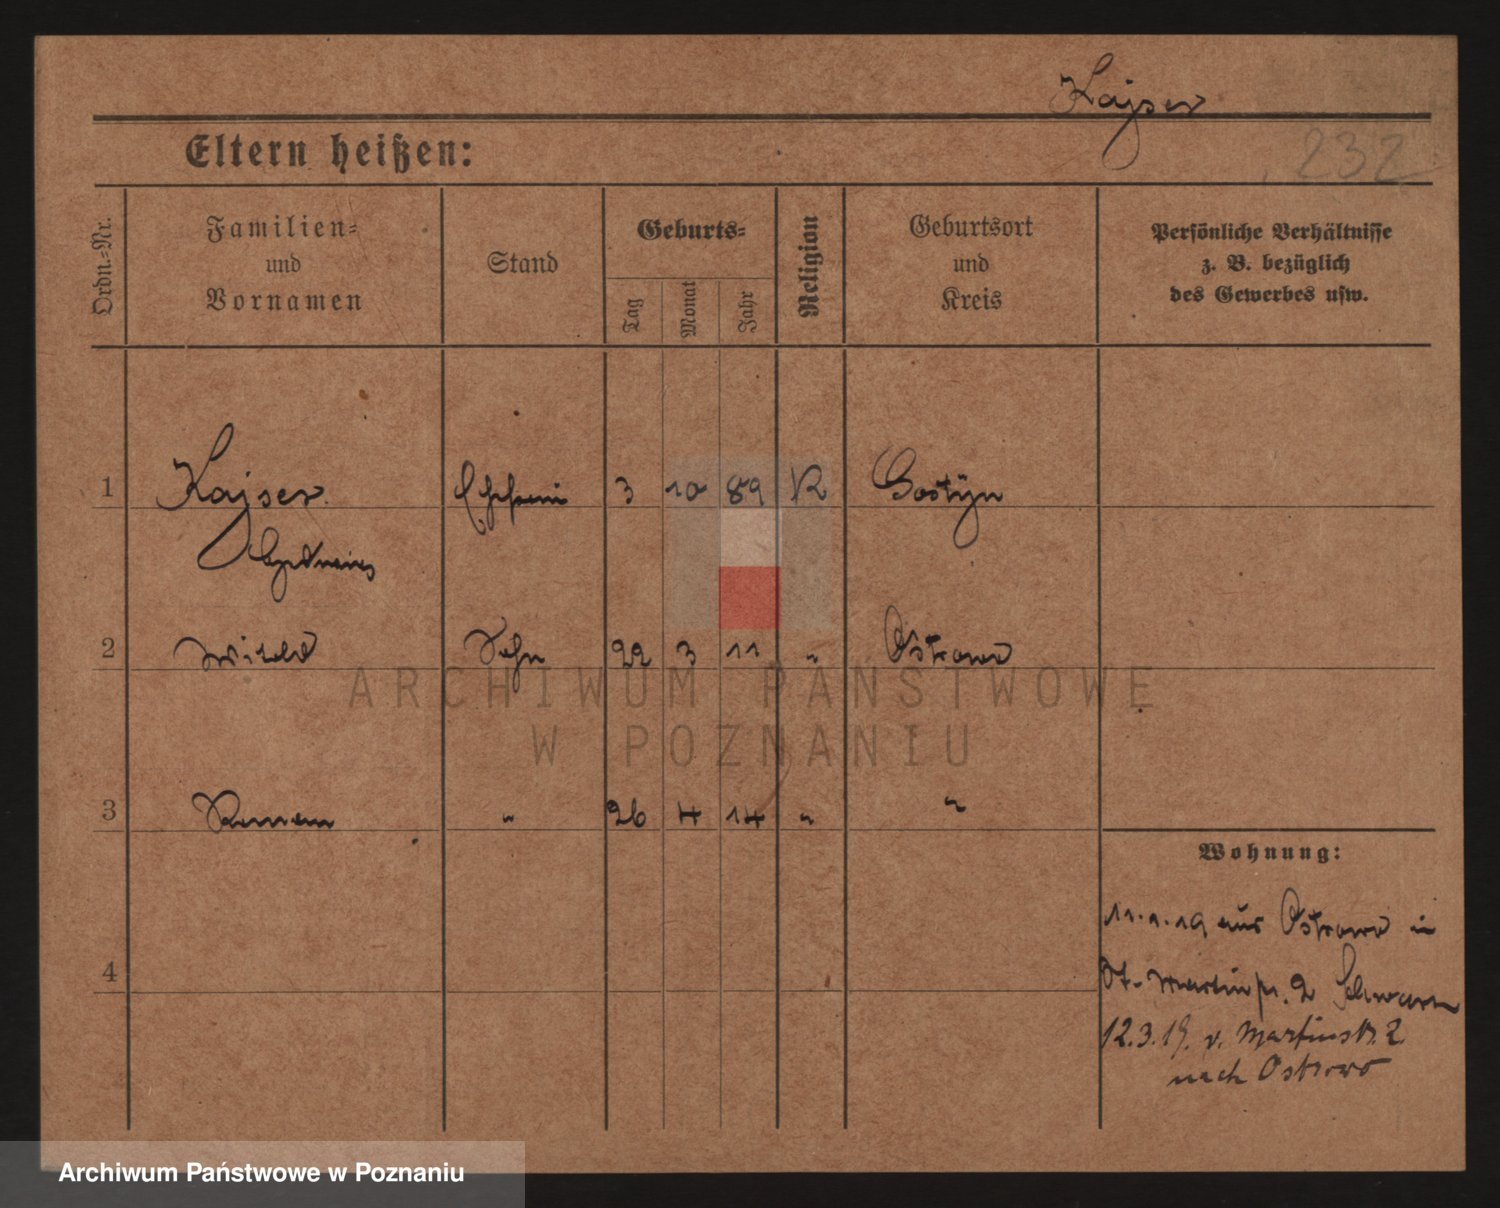 Kajser
232
Eltern heißen:
Ordn.-Nr.
Familien-
und
Vornamen
Stand
Geburts-
Tag
Monat
Jahr
Religion
Geburtsort
und
Kreis
Persönliche Verhältnisse
z. B. bezüglich
des Gewerbes usw.
1 Kajser 3 10 89 K Gostÿn
2 Witold Sohn 22 3 11 " Ostrowo
3 Roman " 26 4 14 " "
Wohnung:
4
11.1.19 aus Ostrowo in
St. Martinstr. 2
12.3.19. v. Martinstr. 2
nach Ostrowo
ARCHIWUM PAŃSTWOWE
W POZNANIU
Archiwum Państwowe w Poznaniu